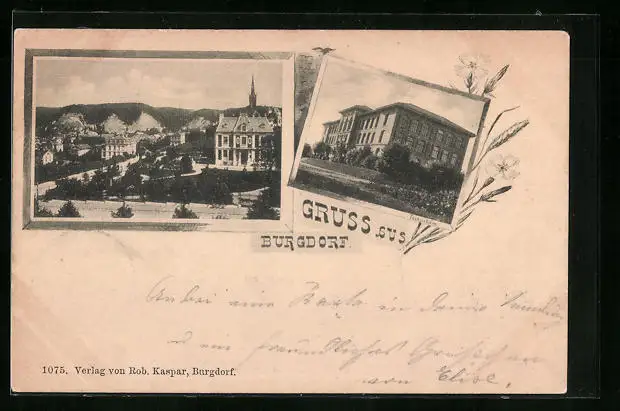 GRUSS AUS
BURGDORF.
Anbei eine Karte in deine Sammlung
u ein freundliches
von Elise.
1075. Verlag von Rob. Kaspar, Burgdorf.